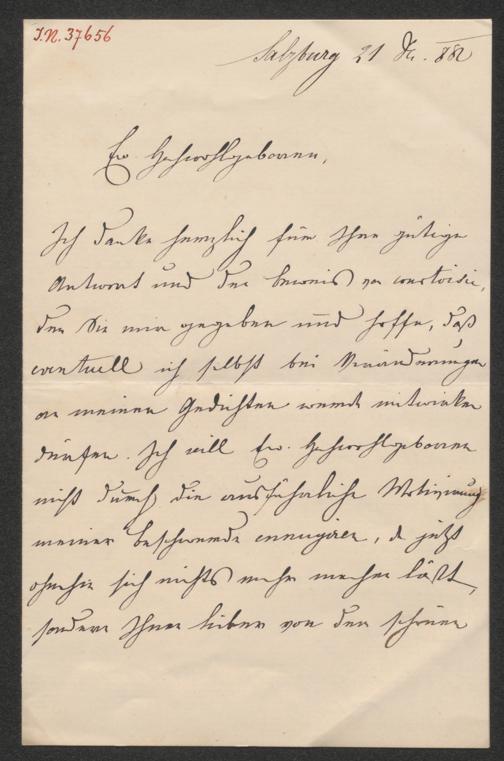 I.N. 37656
Salzburg 21 Dec. 882
Ew. Hochwohlgeboren,
Ich danke herzlich für Ihre gütige
Antwort und den beweis von courtoisie,
den Sie mir gegeben und hoffe, daß
eventuell ich selbst bei Veränderungen
an meinen Gedichten werde mitwirken
dürfen. Ich will Ew. Hochwohlgeboren
nicht durch die ausführliche Motivirung
meiner beschwerde ennuyiren, da jetzt
ohnehin sich nichts mehr machen läßt,
sondern Ihnen lieber von den schönen